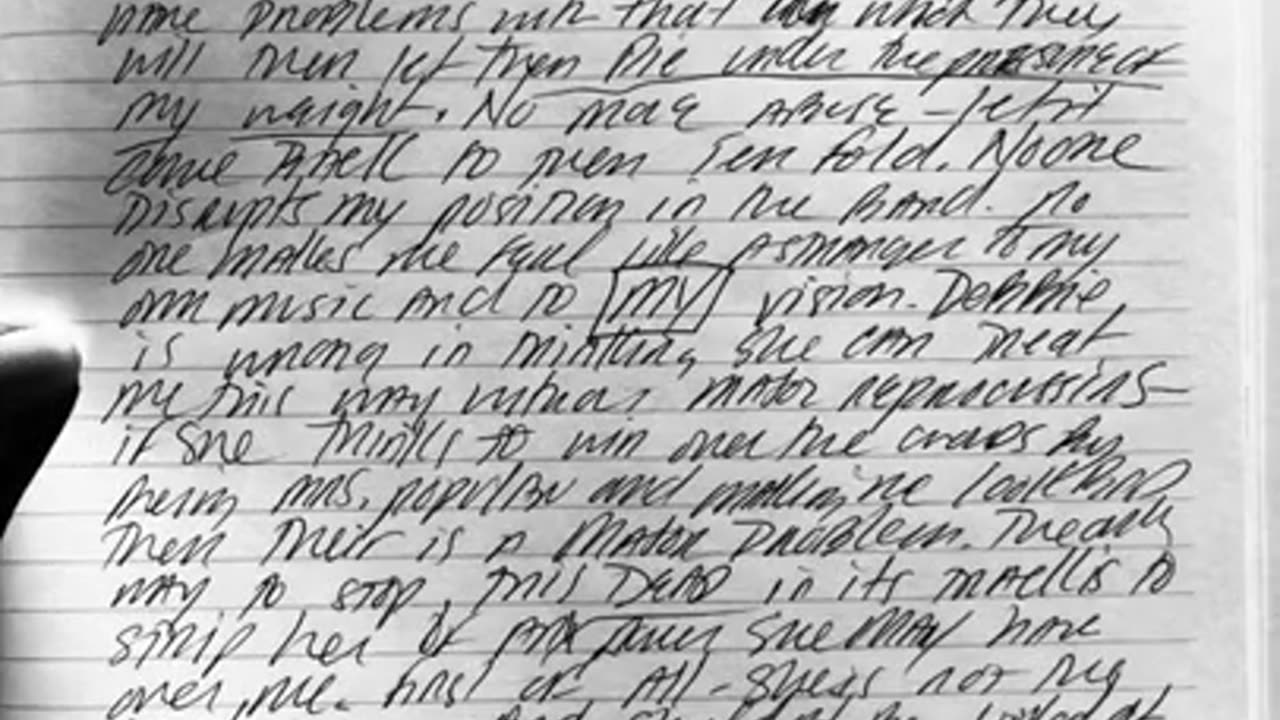 some problems with that way which they
will then let them Die under the
my weight. No more abuse - let it
come Back to them Ten fold. No one
Disrupts my position in the Band. no
one makes me feel like a stranger to my
own music and to my vision. Debbie,
is wrong in thinking she can treat
me this way without major
if she thinks to win over the crowds by
being mrs. popular and making me look Bad
Then their is a major problem. The only
way to stop, this DEAD in its tracks is to
strip her of any power she may have
over, me. first of All - she is not my